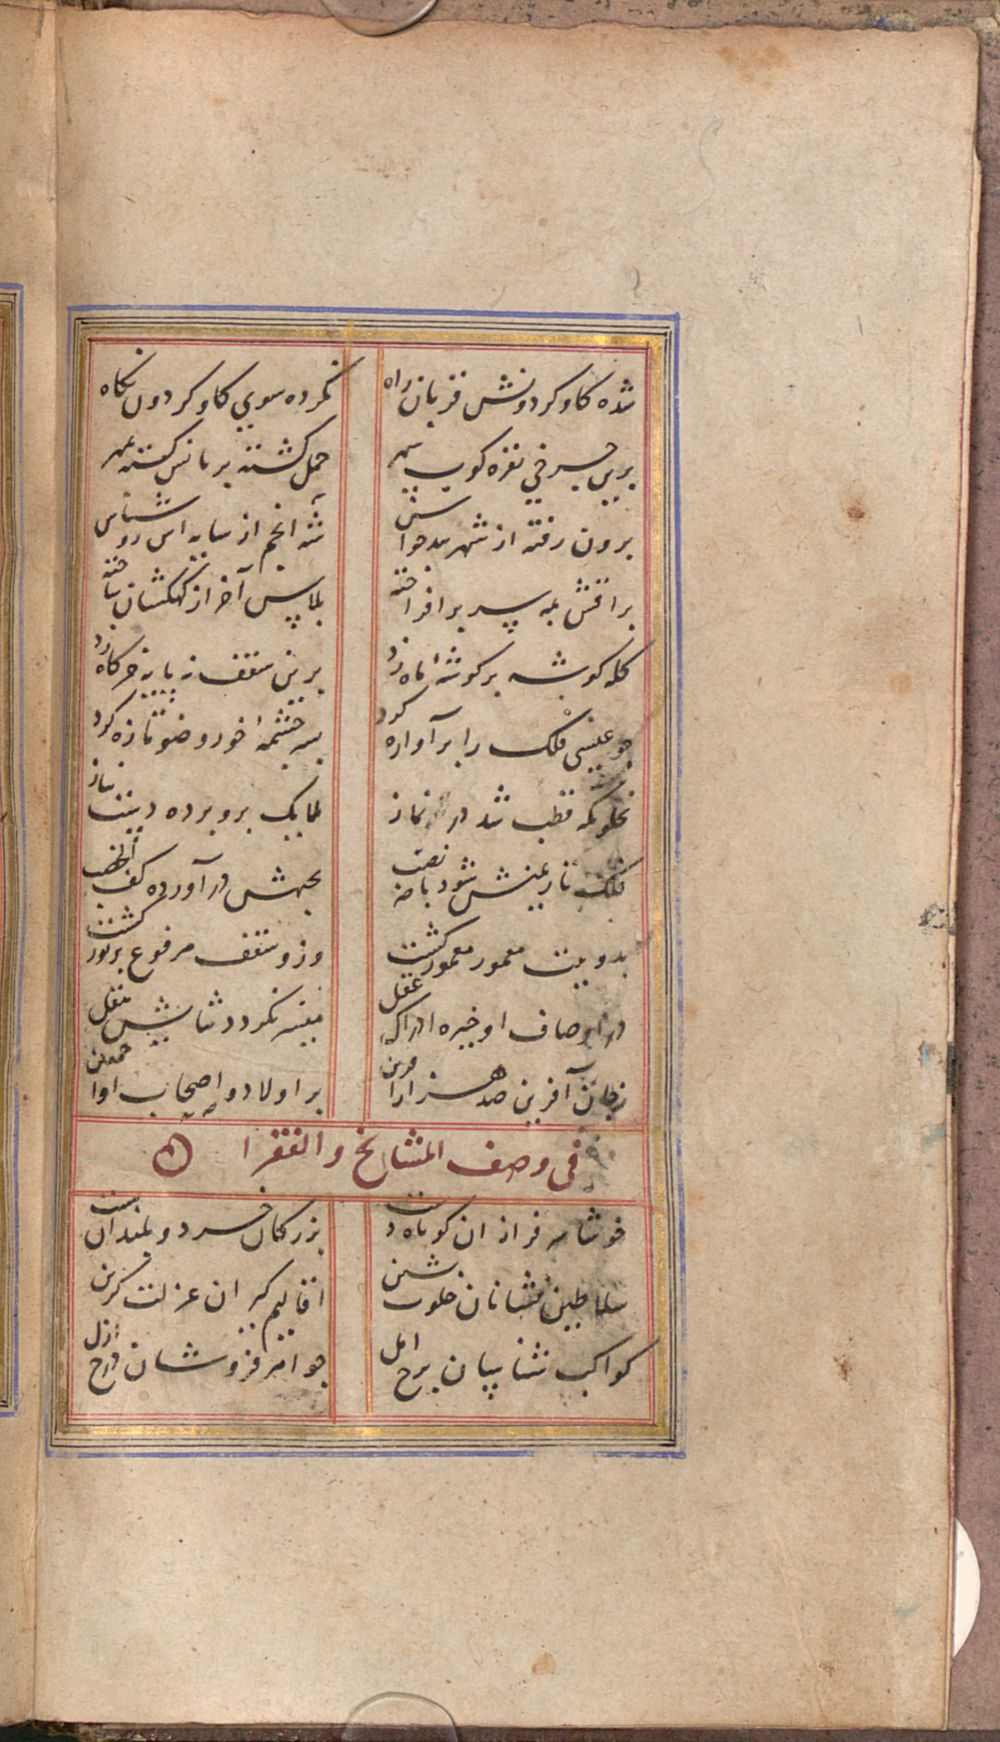 شده کاو کردونش قربان راه
نکرده سوی کاو کردون نکاه
برین چرخی نقره کوب سپهر
حمل کشته بریانش کشته مهر
برون رفته از شهر بدحواسش
شه انجم از سایه اش روشناس
براقش به پسر برافراخته
پلاس آخر از کهکشان یافته
کله کوشه بر کوشهٔ ماه زد
برین سقف نه پایه خرکاه زد
چو عیسی فلک را برآوازه کرد
سر چشمهٔ خور وضو تازه کرد
بخلوتکه قطب شد در نماز
ملایک برو برده دست نیاز
فلک تا
بجهتش درآورده کف الخضیب
بدو بیت معمور معمور کشت
وزو سقف مرفوع پرنور کشت
در اوصاف او خیره ادراک عقل
میسر نکردد ثنایش بنقل
آفرین صد هزار آفرین
بر اولاد و اصحاب او اجمعین
فی وصف المشایخ والفقرا
خوشا سرفرازان کوتاه دست
بزرکان خرد و بلندان پست
سلاطین نشانان خلوت نشین
اقالیم کیران عزلت کزین
کواکب شناسان برج امل
جواهر فروشان درج ازل